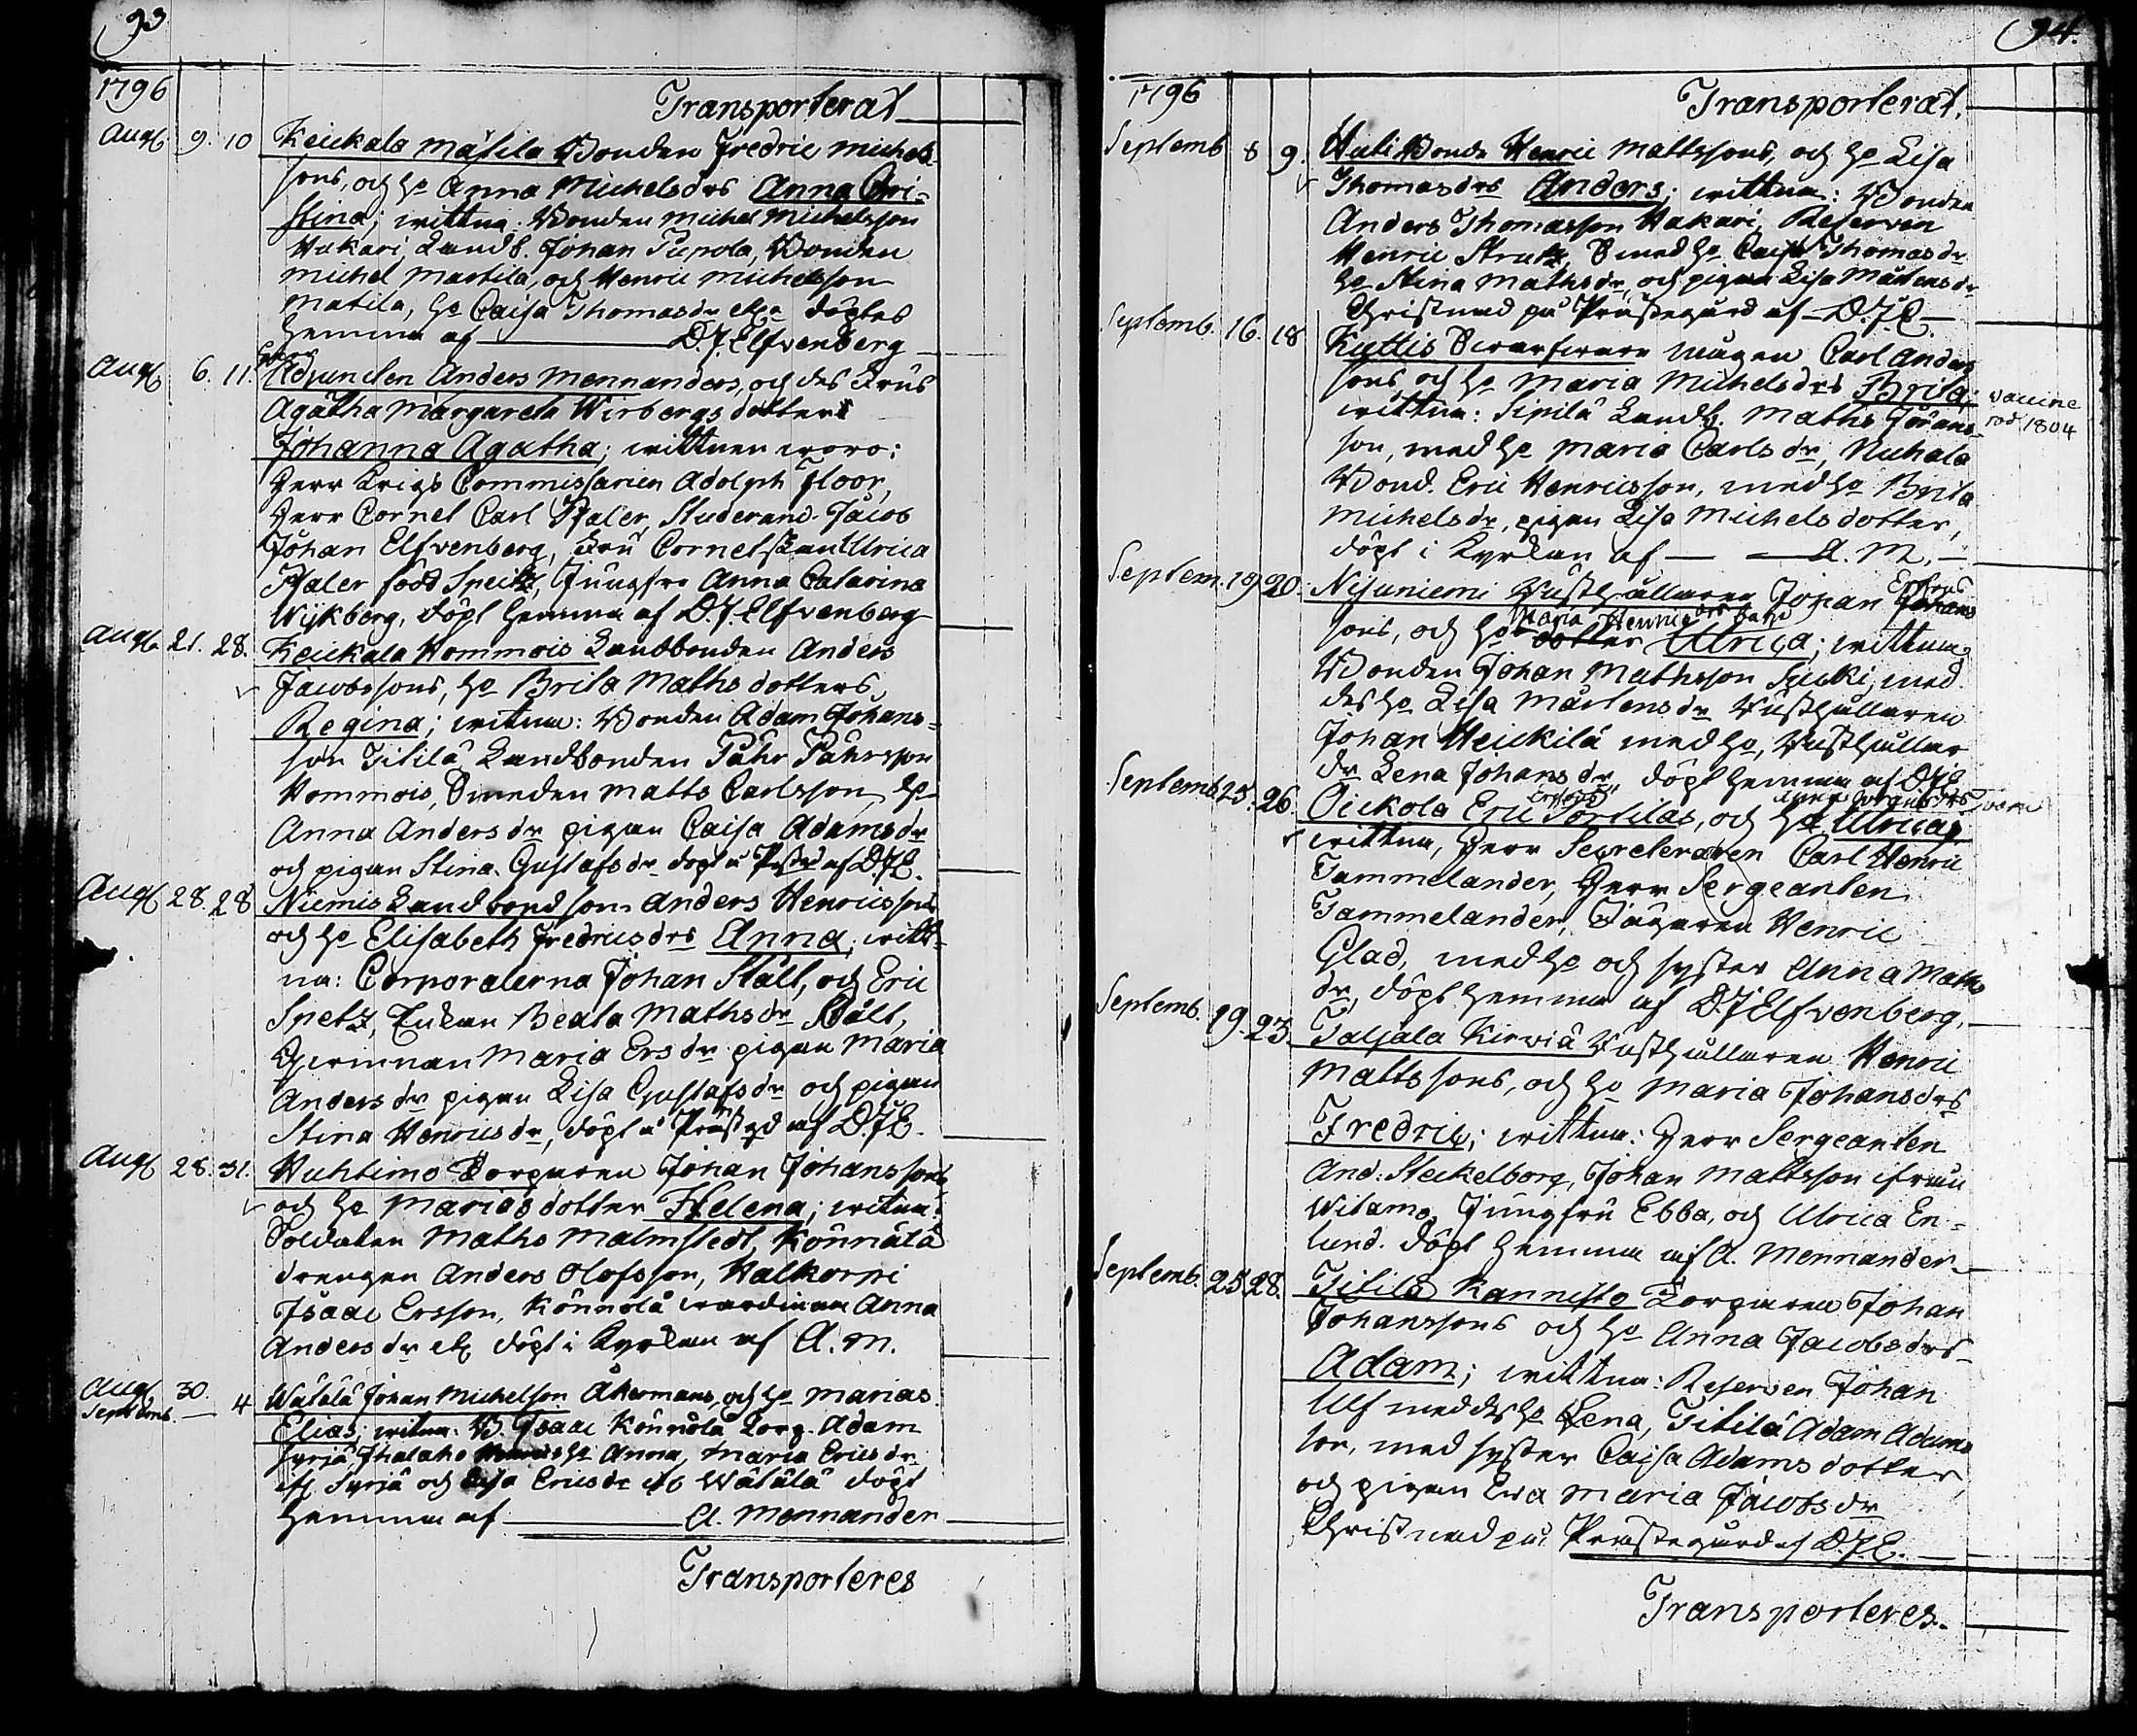 93
1796
Transporterat
Aug. 9. 10 Keickala Mätila Bonden Fredric Michels
sons, och h. Anna Michelsdrs Anna Chri-
stina; wittna. Bonden Michel Michelsson
Hakari, Landb. Johan Pirola, Bonden
Michel Martila, och Henric Michelsson
Matila, h. Caisa Thomasdr etc. döptes
hemma af D. J. Elfvenberg
Aug. 6. 11. Adjuncten Anders Mennanders, och des Frus
Agatha Margareta Wirbergs dotter
Johanna Agatha; wittnen woro:
Herr Krigs Commissarien Adolph Floor,
Herr Cornet Carl Pfaler, Studerand. Jacob
Johan Elfvenberg, Fru Cornetskan Ulrica
Pfaler född Speitz, Jungfru Anna Catarina
Wijkberg, döpt hemma af D. J. Elfvenberg
Aug. 21. 28. Keickala Hommois Landbonden Anders
Jacobssons, h. Brita Mathsdotters,
Regina; witna: Bonden Adam Johans-
son Titilä Landbonden Påhr Påhrsson
Hommois, Smeden Matts Carlsson, h.
Anna Andersdr pigan Caisa Adamsdr
och pigan Stina Gustafsdr döpt i Prästgd af DJE.
Aug. 28. 28 Niemis Landbondson Anders Henricssons
och h. Elisabeth Fredricsdrs Anna; witt-
na: Corporalerna Johan Stålt, och Eric
Spetz, Enkan Beata Mathsdr Stålt,
Maria Ersdr pigan Maria
Andersdr pigan Lisa Gustafsdr och pigan
Stina Henricsdr, döpt i Prästgd af D.J.E.
Aug. 28. 31. Huhtimo Torparen Johan Johanssons
och h. Marias dotter Helena; witna:
Soldaten Maths Malmstedt, Könnälä
drengen Anders Olofsson, Walkorpi
Isaac Ersson, Könnölä wärdinnan Anna
Andersdr etc döpt i Kyrkan af A. M.
Aug. 30.
Septemb. — 4 Wätälä Johan Michelson Åkermans, och h. Marias
Elias; witna: B. Isaac Könnölä Torp. Adam
Syrjä, Ihalaho h. Anna, Maria Ericsdr
Syrjä och Lisa Ericsdr Wätälä döpt
hemma af A. Mennander
Transporteres
94.
1796
Transporterat.
Septemb 8 9. Huti Bonde Henric Mattssons, och h. Lisa
Thomasdrs Anders; wittna: Bonden
Anders Thomasson Hakari, Reserven
Henric Strutz, Smed h. Caisa Thomasdr
h. Stina Mathsdr, och pigan Lisa Mårtensdr
Christnad på Prästegård af D.J.E.
Septemb. 16. 18 Kuttis Carl Anders
sons och h. Maria Michelsdrs Brita;
wittna: Sipilä Landb. Maths Jörans-
son, med h. Maria Carlsdr, Nuhala
Bond. Eric Henricsson, med h. Brita
Michelsdr, pigan Lisa Michelsdotter,
döpt i Kyrkan af A. M.
1804
Septem. 19 20. Nisuniemi Rusthållaren Johan Johans
sons, och h. Maria Henricsdrs dotter Ulrica; wittna
Bonden Johan Mathsson Sucki, med
des h. Lisa Mårtensdr Rusthållaren
Johan Heickilä med h., Rusthållar
dr Lena Johansdr, döpt hemma af DJE
Septemb 25. 26. Oickola Eric Erssons Tortilas, och h. Ulrica,
wittna, Herr Secreteraren Carl Henric
Tammelander, Herr Sergeanten
Tammelander, Jägaren Henric
Glad, med h. och syster Anna Maths
dr, döpt hemma af D.J Elfvenberg.
Septemb. 19. 23 Taljala Kirwiä Rusthållaren Henric
Mattssons, och h. Maria Johansdrs
Fredric; wittna: Herr Sergeanten
And: Steckelborg, Johan Mattsson ifrån
Witamo, Jungfru Ebba, och Ulrica En-
lund. döpt hemma af A. Mennander
Septemb. 25 28. Titilä Kannisto Torparen Johan
Johanssons och h. Anna Jacobsdrs
Adam; wittna: Reserven Johan
Ulf med des h. Lena, Titilä Adam Adams
son, med syster Caisa Adamsdotter,
och pigan Eva Maria Jacobsdr
Christnad på Prästegård af D.J.E.
Transporteres.